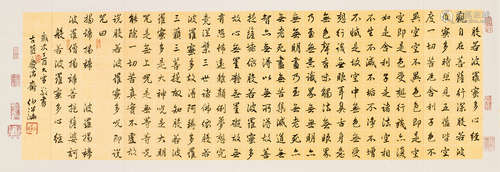 般若波羅蜜多心經
觀自在菩薩行深般若波
羅蜜多時照見五蘊皆空
度一切苦厄舍利子色不
異空空不異色色即是空
空即是色受想行識亦復
如是舍利子是諸法空相
不生不滅不垢不淨不增
不減是故空中無色無受
想行識無眼耳鼻舌身意
無色聲香味觸法無眼界
乃至無意識界無無明亦
無無明盡乃至無老死亦
無老死盡無苦集滅道無
智亦無得以無所得故菩
提薩埵依般若波羅蜜多
故心無罣礙無罣礙故無
有恐怖遠離顛倒夢想究
竟涅槃三世諸佛依般若
波羅蜜多故得阿耨多羅
三藐三菩提故知般若波
羅蜜多是大神咒是大明
咒是無上咒是無等等咒
能除一切苦真實不虛故
說般若波羅蜜多咒即說
咒曰
揭諦揭諦 波羅揭諦
波羅僧揭諦 菩提娑婆訶
般若波羅蜜多心經